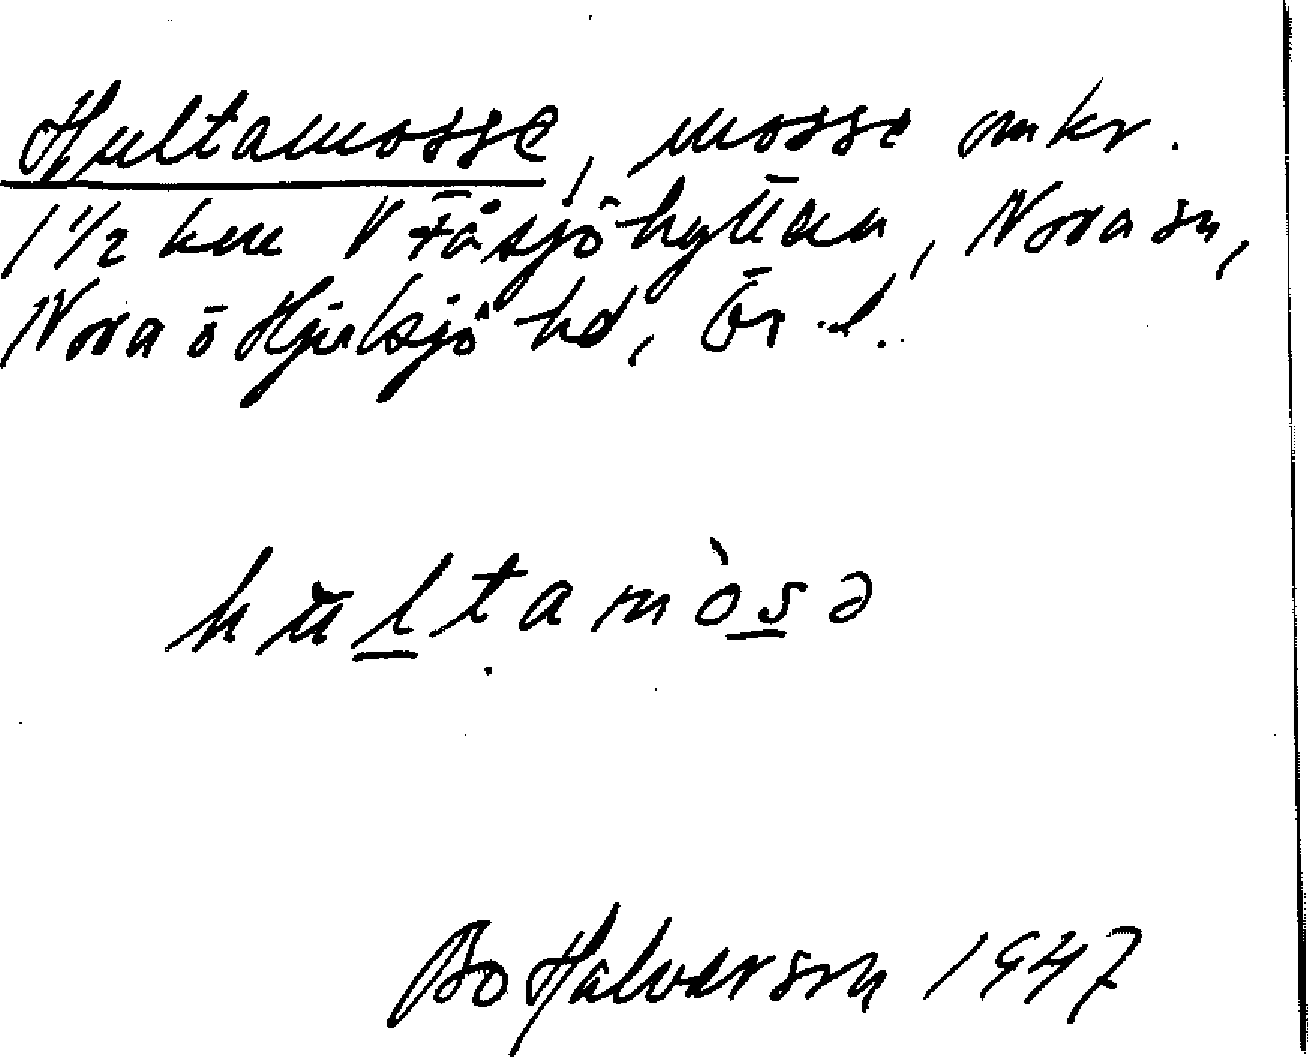 Hultamosse, mosse omkr.
1 1/2 km V Fåsjöhyttan, Nora sn,
Nora o Hjulsjö hd, Ör. l.
hultamòsə
Bo Halvarson 1947